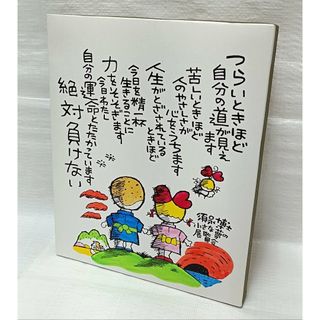 つらいときほど
自分の道が見え
ます
苦しいときほど
人のやさしさが
心をうつます
人生がとざされている
ときほど
今日を精一杯
生きることに
力をそそぎます
今日わたし
自分の運命とたたかっています
絶対負けない